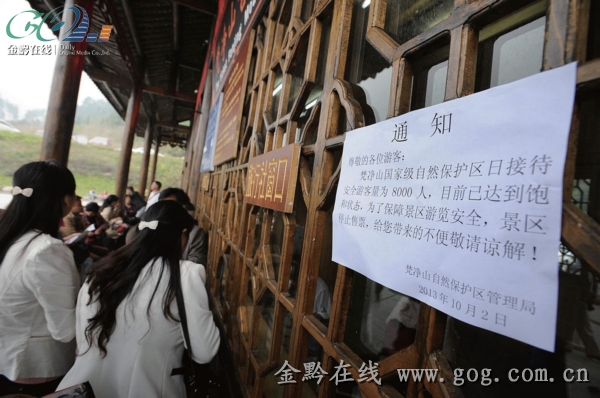 金黔在线
通 知
尊敬的各位游客：
梵净山国家级自然保护区日接待
安全游客量为 8000 人，目前已达到饱
和状态，为了保障景区游览安全，景区
停止售票，给您带来的不便敬请谅解！
梵净山自然保护区管理局
2013年10月2日
旅行社窗口
金黔在线 www.gog.com.cn